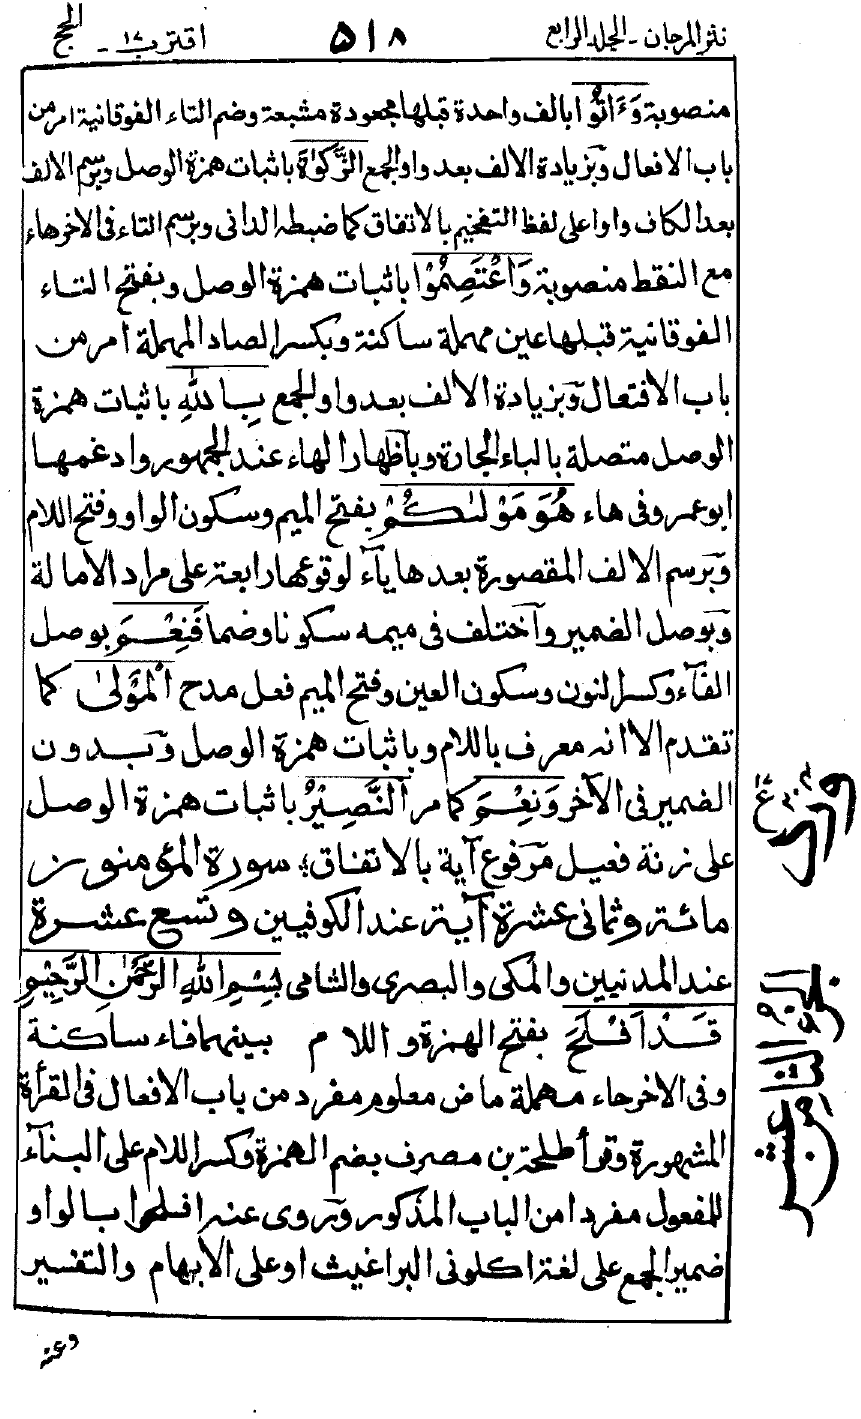 نثر المرجان - الجلد الرابع ٥١٨ اقترب ١٧ - الحج
منصوبة وَءَاتُوا بالف واحدة قبلها مجعودة مشبعة وضم التاء الفوقانية امر من
باب الافعال وبزيادة الالف بعد واو الجمع الزَّكَوٰةَ باثبات همزة الوصل وبرسم الالف
بعد الكاف واوا على لفظ التفخيم بالاتفاق كما ضبطه الدانى وبرسم التاء فى الاخر هاء
مع النقط منصوبة وَاعْتَصِمُوْا باثبات همزة الوصل وبفتح التاء
الفوقانية قبلها عين مهملة ساكنة وبكسر الصاد المهملة امر من
باب الافتعال وبزيادة الالف بعد واو الجمع بِاللهِ باثبات همزة
الوصل متصلة بالباء الجارة وباظهار الهاء عند الجمهور وادغمها
ابو عمرو فى هاء هُوَ مَوْلٰىكُمْ بفتح الميم وسكون الواو وفتح اللام
وبرسم الالف المقصورة بعدها ياء لوقوعها رابعة على مراد الامالة
وبوصل الضمير واختلف فى ميمه سكونا وضما فَنِعْمَ بوصل
الفاء وكسر النون وسكون العين وفتح الميم فعل مدح الْمَوْلٰى كما
تقدم الا انه معرف باللام وباثبات همزة الوصل وبدون
الضمير فى الآخر وَنِعْمَ كما مر النَّصِيْرُ باثبات همزة الوصل
على زنة فعيل مرفوع آية بالاتفاق؛ سورة المؤمنون
مائة وثمانى عشرة آية عند الكوفيين وتسع عشرة
عند المدنيين والمكى والبصرى والشامى بِسْمِ اللهِ الرَّحْمٰنِ الرَّحِيْمِ
قَدْ اَفْلَحَ بفتح الهمزة واللام بينهما فاء ساكنة
وفى الاخر حاء مهملة ماض معلوم مفرد من باب الافعال فى القرأة
المشهورة وقرأ طلحة بن مصرف بضم الهمزة وكسر اللام على البناء
للمفعول مفردا من الباب المذكور وروى عنه افلحوا بالواو
ضمير الجمع على لغة اكلونى البراغيث او على الابهام والتفسير
وعنه
ع ١٧
الجزء الثامن عشر